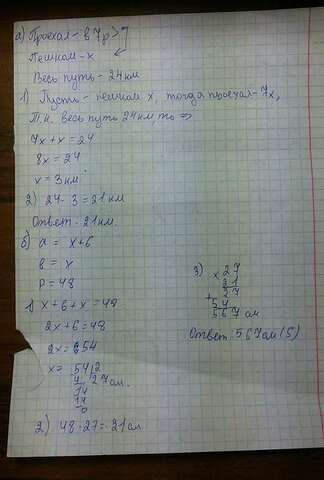 а) Проехал - в 7р >
Пешком - х
Весь путь - 24 км
1) Пусть - пешком х, тогда проехал - 7х,
т.к. весь путь 24 км, то =>
7х + х = 24
8х = 24
х = 3 км
2) 24 - 3 = 21 км
Ответ - 21 км.
б) а = х+6
в = х
Р = 48
1) х + 6 + х = 48
2х + 6 = 48
2х = 54
х = 54 | 2
4 27 см.
14
14
0
2) 48 - 27 = 21 см
3) 27
х 21
27
+ 54
567 см
Ответ - 567 см (S)